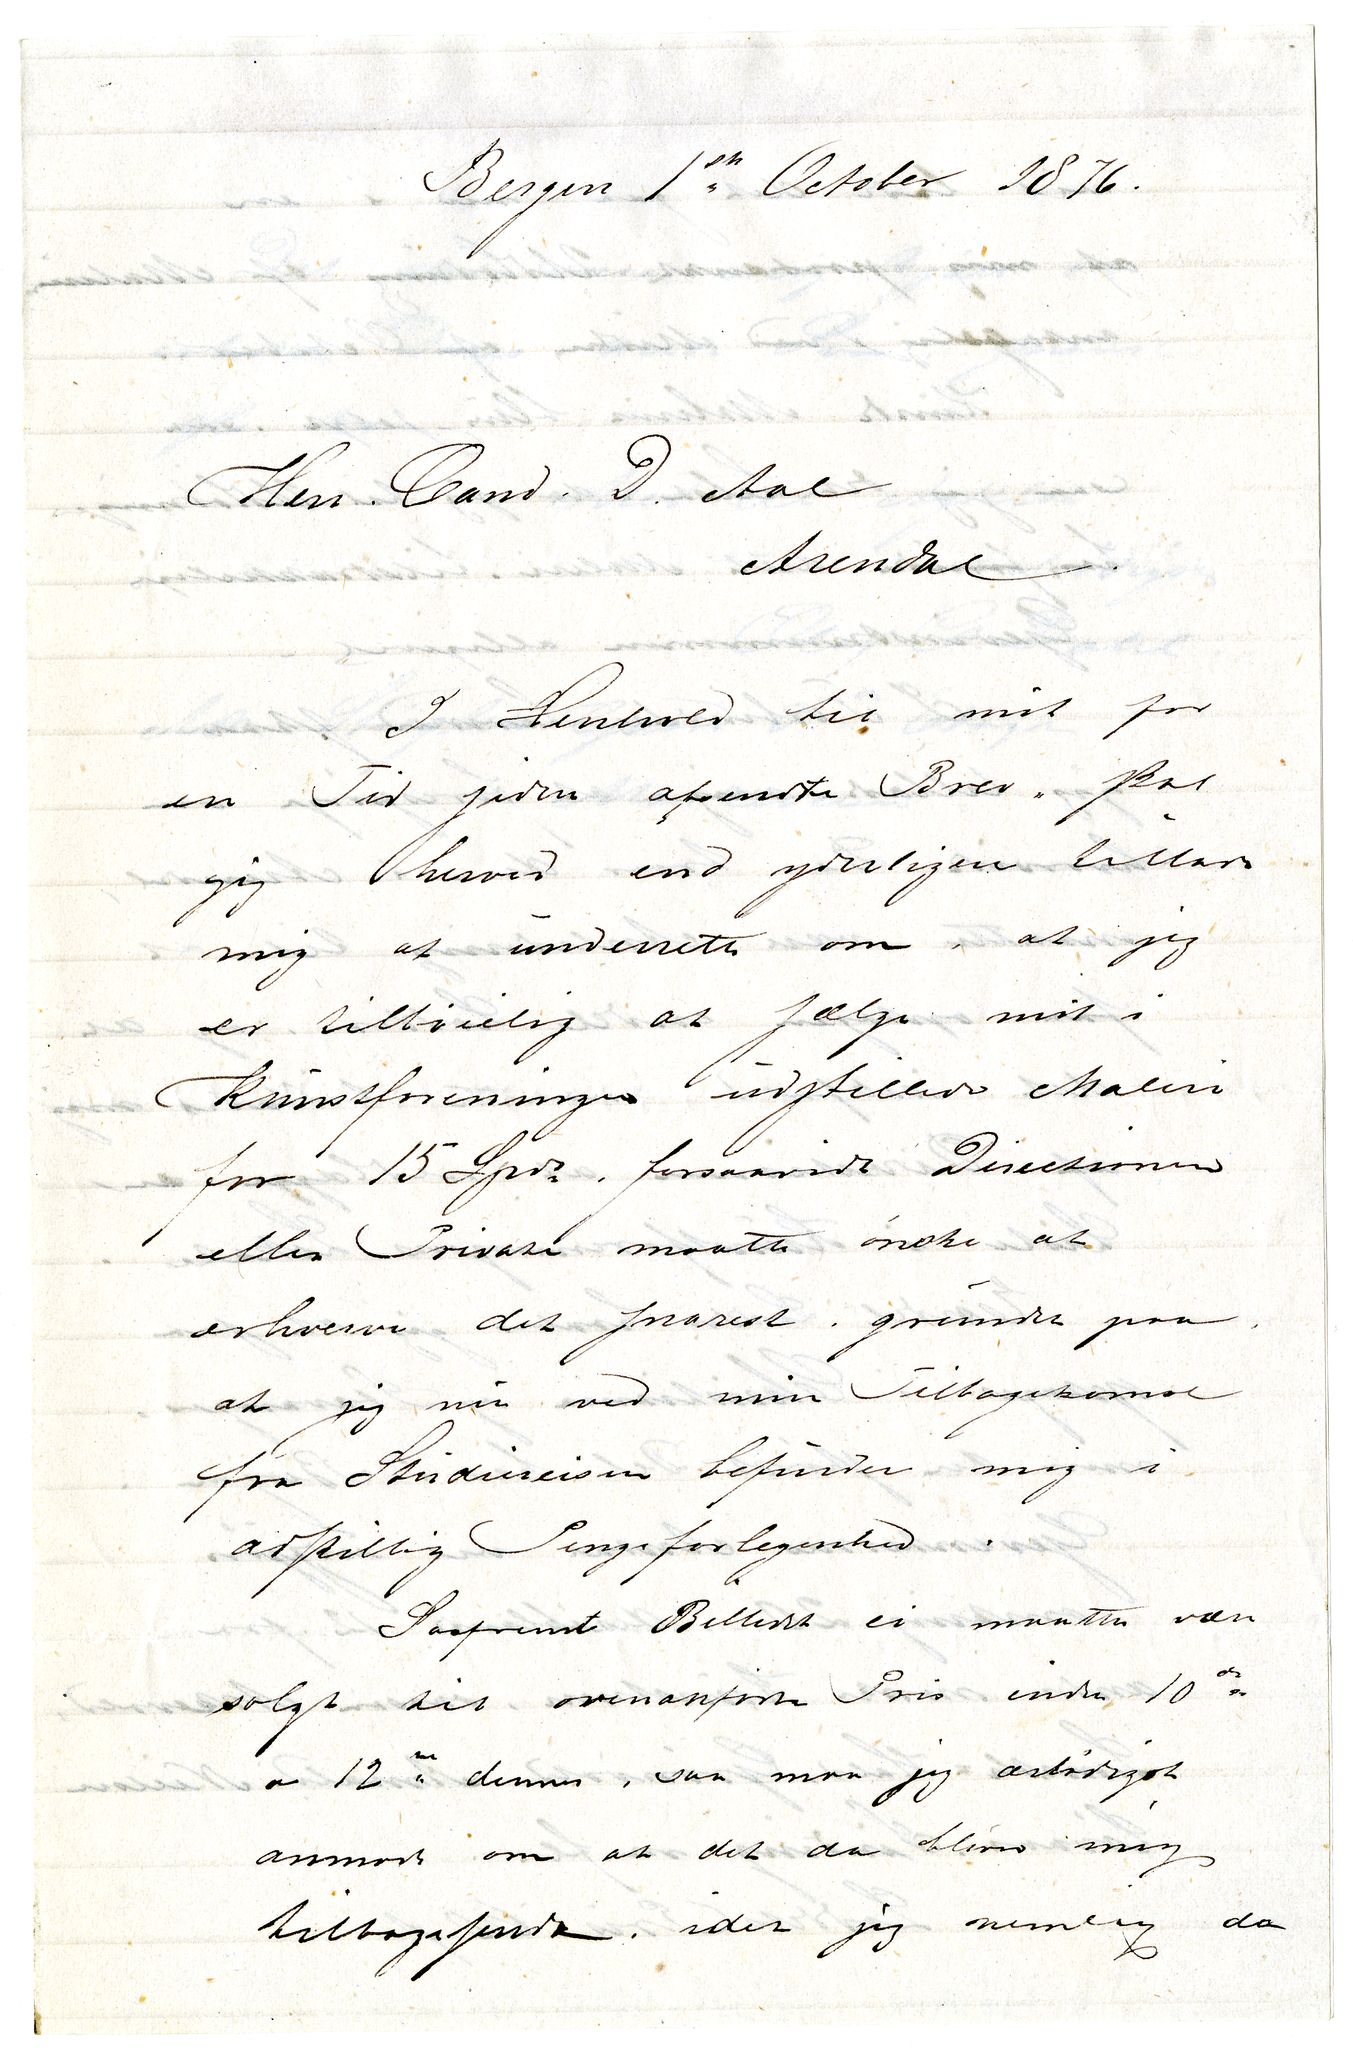 Bergen 1ste October 1876.
Herr. Cand. D. Aal
Arendal
I Henhold til mit for
en Tid siden afsendte Brev, skal
jeg herved end yderligere tillade
mig at underrette om, at jeg
er tilbøielig at sælge mit i
Kunstforeningen udstillede Maleri
for 15 Spd., forsaavidt Directionen
eller Private maatte ønske at
erhverve det snarest, grundet paa,
at jeg nu ved min Tilbagekomst
fra Studiereisen befinder mig i
adskillig Pengeforlegenhed.
Saafremt Billedet ei maatte være
solgt til ovenanførte Pris inden 10de
a 12te dennes, saa maa jeg ærbødigst
anmode om at det da bliver mig
tilbagesendt, idet jeg nemlig da